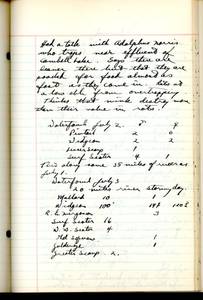 Had a talk with Adolphus Norris
who traps near effluent of
Campbell Lake. Says there are
beaver there but that they are
for food almost as
fast as they come in. Rats at
a low ebb from overtrapping
Thinks that mink destroy more
than their value in rats!
Waterfowl July 2.
Pintail 2 0
Widgeon 2 2
Lesser Scaup 1
Surf Scoter 4
This along some 35 miles of river as
July 1.
Waterfowl July 3
20 miles river stormy day.
Mallard 10
Widgeon 100
3
Surf Scoter 16
W. W. Scoter 4
Old Squaw 1
Goldeneye 1
Greater Scaup 2.